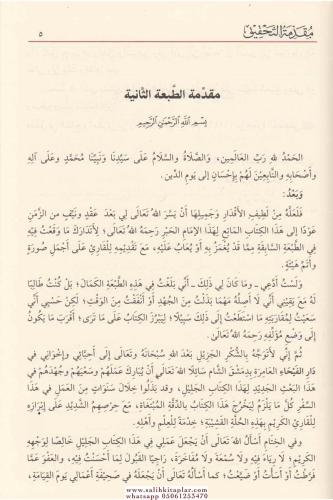 مُقَدِّمَةُ التَّحْقِيْقِ
٥
مقدّمة الطّبعة الثّانية
بِسْمِ اللَّهِ الرَّحْمَنِ الرَّحِيمِ
الحَمْدُ للهِ رَبِّ العَالَمِين، وَالصَّلَاةُ وَالسَّلَامُ عَلَى سَيِّدِنَا وَنَبِيِّنَا مُحَمَّدٍ وَعَلَى آلِهِ
وَأَصْحَابِهِ وَالتَّابِعِينَ لَهُمْ بِإِحْسَانٍ إِلَى يَوْمِ الدِّين.
وَبَعْدُ:
فَلَعَلَّهُ مِنْ لَطِيفِ الأَقْدَارِ وَجَمِيلِهَا أَنْ يَسَّرَ اللهُ تَعَالَى لِي بَعْدَ عَقْدٍ وَنَيِّفٍ مِن الزَّمَنِ
عَوْدًا إِلَى هَذَا الكِتَابِ المَاتِعِ لِهَذَا الإِمَامِ الحَبْرِ رَحِمَهُ اللهُ تَعَالَى؛ لِأَتَدَارَكَ مَا وَقَعْتُ فِيْهِ
فِي الطَّبْعَةِ السَّابِقَةِ مِمَّا قَدْ يُغْمَزُ بِهِ أَوْ يُعَابُ عَلَيْهِ، مَعَ تَقْدِيمِهِ لِلْقَارِئِ عَلَى أَجْمَلِ صُورَةٍ
وَأَتَمِّ هَيْئَةٍ.
وَلَسْتُ أَدَّعِي - وَمَا كَانَ لِي ذَلِكَ - أَنِّي بَلَغْتُ فِي هَذِهِ الطَّبْعَةِ الكَمَالَ؛ بَلْ كُنْتُ طَالِبًا
لَهُ مَعَ يَقِينِي أَنِّي لَا أَصِلُهُ مَهْمَا بَذَلْتُ مِنَ الجُهْدِ أَوْ أَنْفَقْتُ مِنَ الوَقْتِ؛ لَكِنْ حَسْبِي أَنِّي
سَعَيْتُ لِمُقَارَبَتِهِ مَا اسْتَطَعْتُ إِلَى ذَلِكَ سَبِيلًا؛ لِيَبْرُزَ الكِتَابُ عَلَى مَا تَرَى؛ أَقْرَبَ مَا يَكُونُ
إِلَى وَضْعِ مُؤَلِّفِهِ رَحِمَهُ اللهُ تَعَالَى.
ثُمَّ إِنِّي لأَتَوَجَّهُ بِالشُّكْرِ الجَزِيلِ بَعْدَ اللهِ سُبْحَانَهُ وَتَعَالَى إِلَى أَحِبَّائِي وَإِخْوَانِي فِي
دَارِ الفَيْحَاءِ العَامِرَةِ بِدِمَشْقِ الشَّامِ سَائِلًا اللهَ تَعَالَى أَنْ يُبَارِكَ عَمَلَهُمْ وَسَعْيَهُمْ وَجُهْدَهُمْ فِي
هَذَا البَعْثِ الجَدِيدِ لِهَذَا الكِتَابِ الجَلِيلِ، وَقَدْ بَذَلُوا خِلَالَ سَنَوَاتٍ مِنَ العَمَلِ فِي هَذَا
السِّفْرِ كُلَّ مَا يَلْزَمُ لِيَخْرُجَ هَذَا الكِتَابُ بِالدِّقَّةِ المُبْتَغَاةِ، مَعَ حِرْصِهِمُ الشَّدِيدِ عَلَى إِبْرَازِهِ
لِلْقَارِئِ الكَرِيمِ بِهَذِهِ الحُلَّةِ القَشِيبَةِ؛ خِدْمَةً لِلْعِلْمِ وَأَهْلِهِ.
وَفِي الخِتَامِ أَسْأَلُ اللهَ تَعَالَى أَنْ يَجْعَلَ عَمَلِي فِي هَذَا الكِتَابِ الجَلِيلِ خَالِصًا لِوَجْهِهِ
الكَرِيمِ؛ لَا رِيَاءً فِيْهِ وَلَا سُمْعَةً وَلَا مُفَاخَرَةً، رَاجِيًا القَبُولَ لِمَا أَحْسَنْتُ فِيهِ، وَالعَفْوَ عَمَّا
فَرَّطْتُ أَوْ أَسَأْتُ أَوْ ضَيَّعْتُ؛ كَمَا أَسْأَلُهُ تَعَالَى أَنْ يَجْعَلَهُ فِي صَحِيفَةِ أَعْمَالِي يَوْمَ القِيَامَةِ،
www.salihkitaplar.com
whatsapp 05061253470